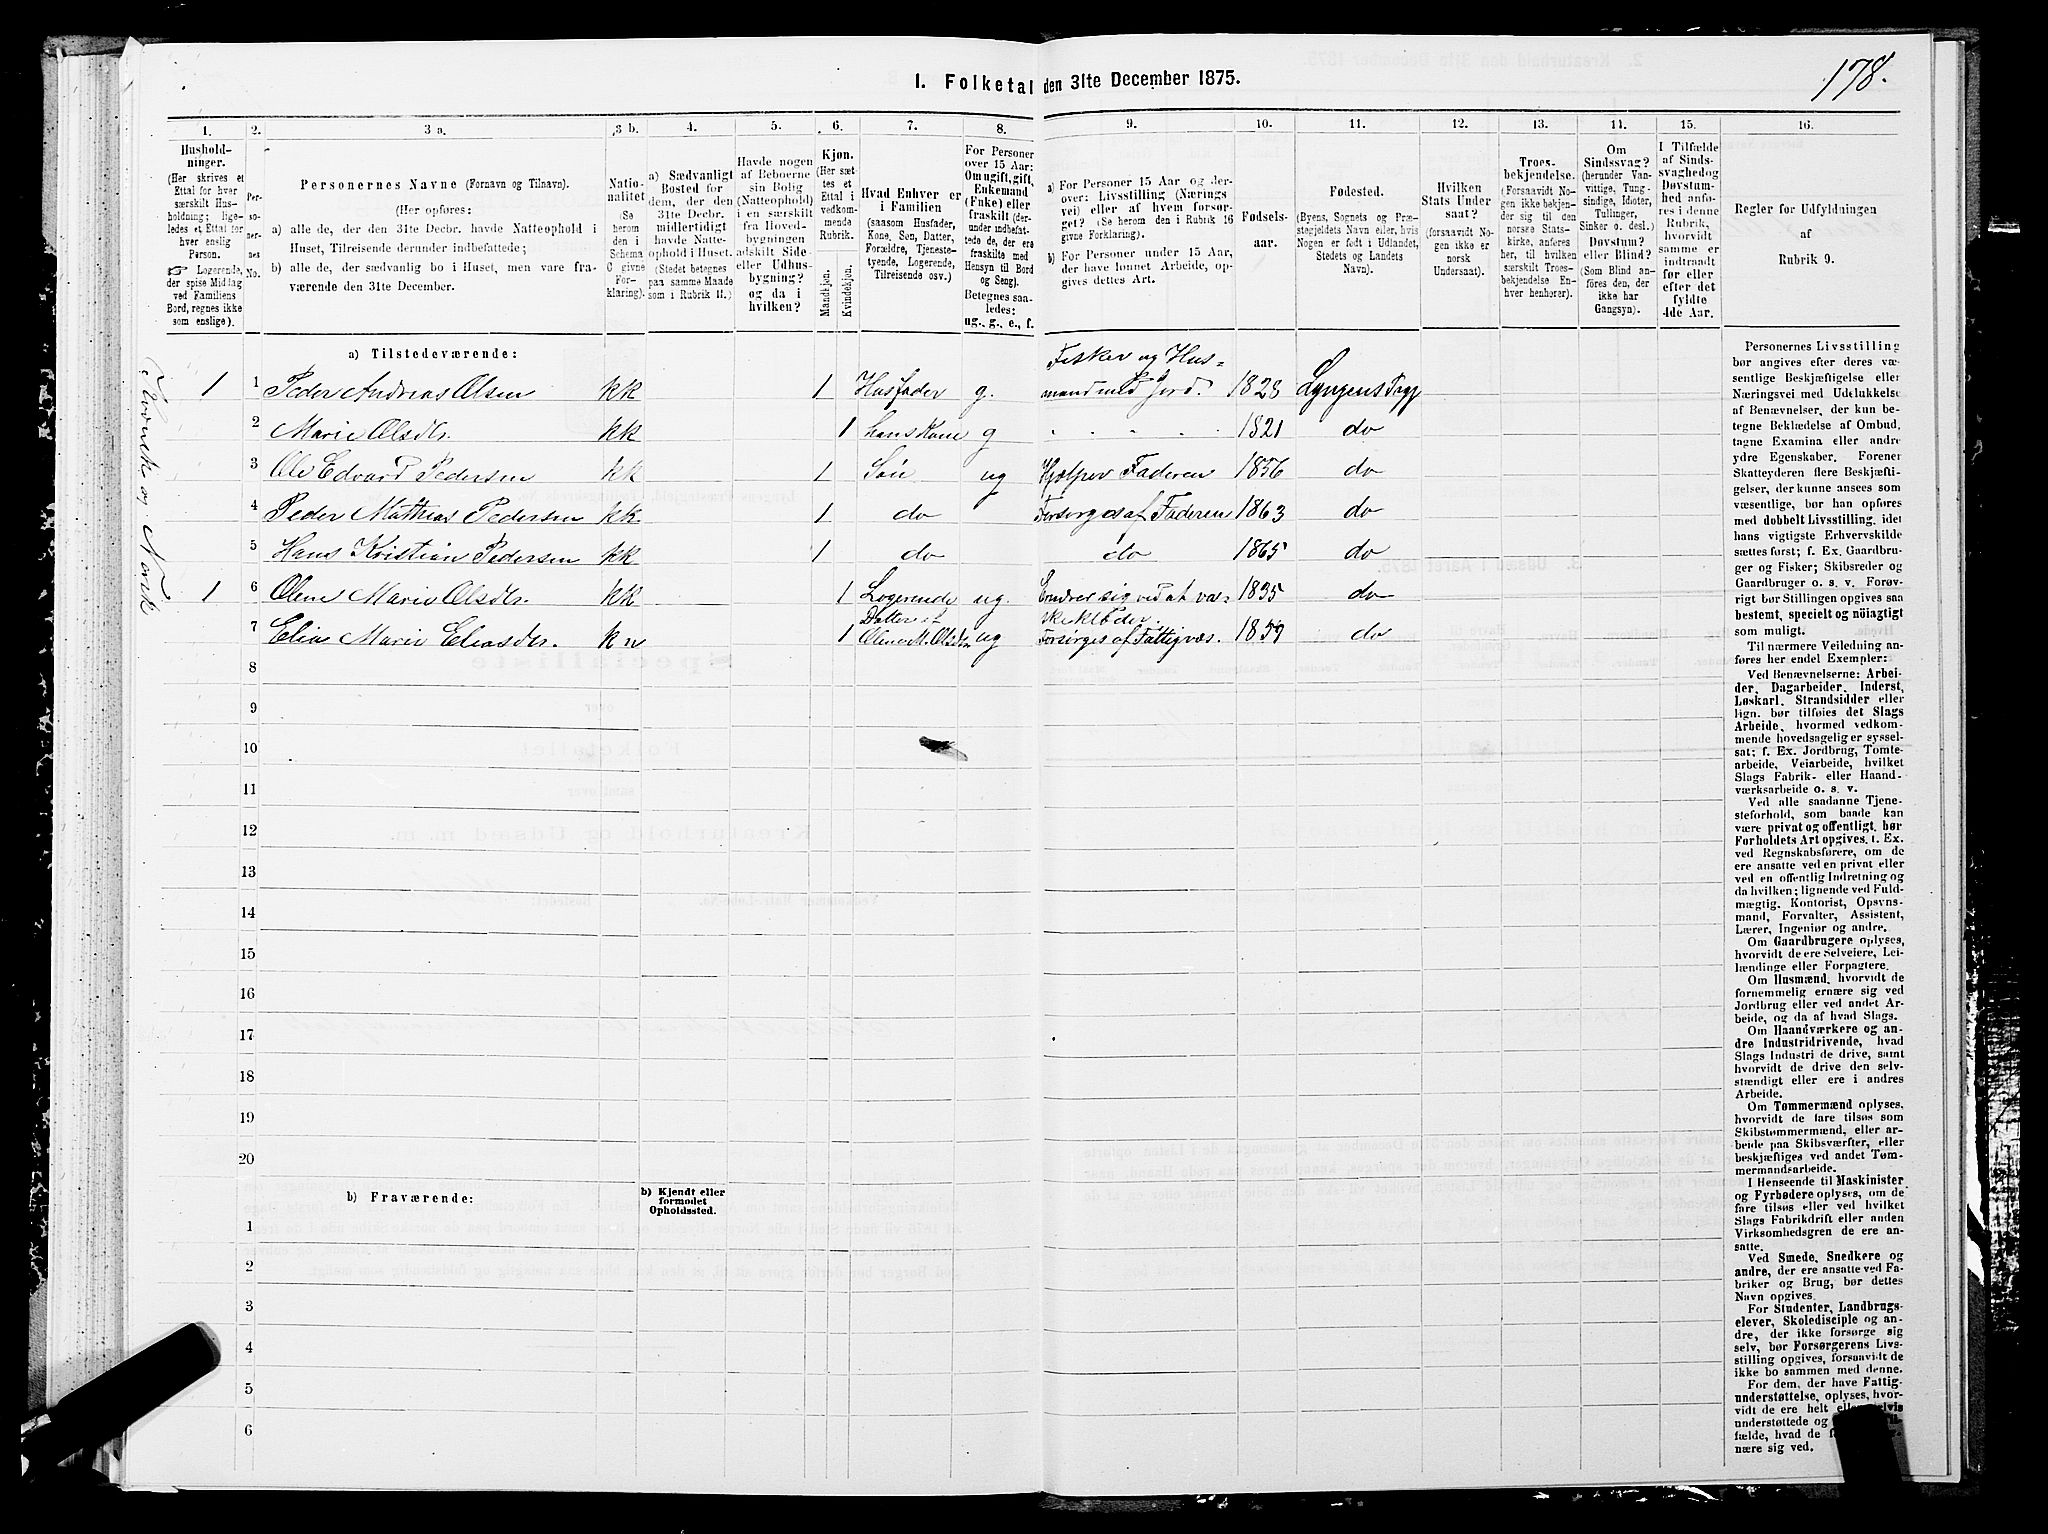 178.
I. Folketal den 31te December 1875.
1. 2. 3 a. 3 b. 4. 5. 6. 7. 8. 9. 10. 11. 12. 13. 14. 15. 16.
Hushold-
ninger.
(Her skrives et
Ettal for hver
særskilt Hus-
holdning; lige-
ledes et Ettal for
hver enslig
Person.
☞ Logerende,
der spise Middag
ved Familiens
Bord, regnes ikke
som enslige).
Per-
so-
ner-
nes
No.
Personernes Navne (Fornavn og Tilnavn).
(Her opføres:
a) alle de, der den 31te Decbr. havde Natteophold i
Huset, Tilreisende derunder indbefattede;
b) alle de, der sædvanlig bo i Huset, men vare fra-
værende den 31te December.
Natio-
nalitet
(Se
herom
den i
Schema
C givne
For-
klaring).
a) Sædvanligt
Bosted for
dem, der den
31te Decbr.
midlertidigt
havde Natte-
ophold i Huset.
(Stedet betegnes
paa samme Maade
som i Rubrik 11.)
Havde nogen
af Beboerne
sin Bolig
(Natteophold)
i en særskilt
fra Hoved-
bygningen
adskilt Side-
eller Udhus-
bygning?
og da i
hvilken?
Kjøn.
(Her sæt-
tes et
Ettal i
vedkom-
mende
Rubrik.
Mandkjøn.
Kvindekjøn.
Hvad Enhver er
i Familien
(saasom Husfader,
Kone, Søn, Datter,
Forældre, Tjeneste-
tyende, Logerende,
Tilreisende osv.)
For Personer
over 15 Aar:
Om ugift, gift,
Enkemand
(Enke) eller
fraskilt (der-
under indbefat-
tede de, der ere
fraskilte med
Hensyn til Bord
og Seng).
Betegnes saa-
ledes:
ug., g., e., f.
a) For Personer 15 Aar og der-
over: Livsstilling (Nærings-
vei) eller af hvem forsør-
get? (Se herom den i Rubrik 16
givne Forklaring).
b) For Personer under 15 Aar,
der have lønnet Arbeide, op-
gives dettes Art.
Fødsels-
aar.
Fødested.
(Byens, Sognets og Præ-
stegjeldets Navn eller, hvis
Nogen er født i Udlandet,
Stedets og Landets
Navn).
Hvilken
Stats Under
saat?
(forsaavidt No-
gen ikke er
norsk
Undersaat).
Troes-
bekjendelse.
(Forsaavidt No-
gen ikke bekjen-
der sig til den
norske Stats-
kirke, anføres
her, til hvilken
særskilt Troes-
bekjendelse En-
hver henhører).
Om
Sindssvag?
(herunder Van-
vittige, Tung-
sindige, Idioter,
Tullinger,
Sinker o. desl.)
Døvstum?
eller Blind?
(Som Blind an-
føres den, der
ikke har
Gangsyn).
I Tilfælde
af Sinds-
svaghed og
Døvstum-
hed anfø-
res i denne
Rubrik,
hvorvidt
samme er
indtraadt
før eller
efter det
fyldte
4de Aar.
Regler for Udfyldningen
af
Rubrik 9.
a) Tilstedeværende:
Fisker og Hus-
1 1 Peder Andreas Olsen kk 1 Husfader g. mand med Jord. 1828 Lyngens Præ
2 Marie Olsdtr. kk 1 hans Kone g " " " " 1821 do
3 Ole Edvard Pedersen kk 1 Søn ug Hjælper Faderen 1856 do
4 Peder Mathias Pedersen kk 1 do Forsørges af Faderen 1863 do
5 Hans Kristian Pedersen kk 1 do do 1865 do
1 6 Olene Marie Olsdtr. kk 1 Logerende ug. Ernærer sig ved at vas- 1835 do
Datter af ke klæder.
7 Elise Marie Eliasdtr. k n 1 Olene M. Olsdtr. ug Forsørges af Fattigvæs. 1859 do
8
9
10
11
12
13
14
15
16
17
18
19
20
b) Fraværende:
b) Kjendt eller
formodet
Opholdssted.
1
2
3
4
5
6
Personernes Livsstilling
bør angives efter deres væ-
sentlige Beskjæftigelse eller
Næringsvei med Udelukkelse
af Benævnelser, der kun be-
tegne Beklædelse af Ombud,
tagne Examina eller andre
ydre Egenskaber. Forener
Skatteyderen flere Beskjæfti-
gelser, der kunne ansees som
væsentlige, bør han opføres
med dobbelt Livsstilling, idet
hans vigtigste Erhvervskilde
sættes først; f. Ex. Gaardbru-
ger og Fisker; Skibsreder og
Gaardbruger o. s. v. Forøv-
rigt bør Stillingen opgives saa
bestemt, specielt og nøiagtigt
som muligt.
Til nærmere Veiledning an-
føres her endel Exempler:
Ved Benævnelserne: Arbei-
der, Dagarbeider, Inderst,
Løskarl, Strandsidder eller
lign. bør tilføies det Slags
Arbeide, hvormed vedkom-
mende hovedsagelig er syssel-
sat; f. Ex. Jordbrug, Tomte-
arbeide, Veiarbeide, hvilket
Slags Fabrik- eller Haand-
værksarbeide o. s. v.
Ved alle saadanne Tjene-
steforhold, som baade kan
være privat og offentligt, bør
Forholdets Art opgives, f. Ex.
ved Regnskabsførere, om de
ere ansatte ved en privat eller
ved en offentlig Indretning og
da hvilken; lignende ved Fuld-
mægtig, Kontorist, Opsyns-
mand, Forvalter, Assistent,
Lærer, Ingeniør og andre.
Om Gaardbrugere oplyses,
hvorvidt de ere Selveiere, Lei-
lændinge eller Forpagtere.
Om Husmænd, hvorvidt de
fornemmelig ernære sig ved
Jordbrug eller ved andet Ar-
beide, og da af hvad Slags.
Om Haandværkere og an-
dre Industridrivende, hvad
Slags Industri de drive, samt
hvorvidt de drive den selv-
stændigt eller ere i andres
Arbeide.
Om Tømmermænd oplyses,
hvorvidt de fare tilsøs som
Skibstømmermænd, eller ar-
beide paa Skibsværfter, eller
beskjæftiges ved andet Tøm-
mermandsarbeide.
I Henseende til Maskinister
og Fyrbødere oplyses, om de
fare tilsøs eller ved hvilket
Slags Fabrikdrift eller anden
Virksomhedsgren de ere an-
satte.
Ved Smede, Snedkere og
andre, der ere ansatte ved Fa-
briker og Brug, bør dettes
Navn opgives.
For Studenter, Landbrugs-
elever, Skoledisciple og an-
dre, der ikke forsørge sig
selv, bør Forsørgerens Livs-
stilling opgives, forsaavidt de
ikke bo sammen med denne.
For dem, der have Fattig-
understøttelse, oplyses, hvor-
vidt de ere helt eller delvis
understøttede og
fælde, hvad de
nære sig ved.